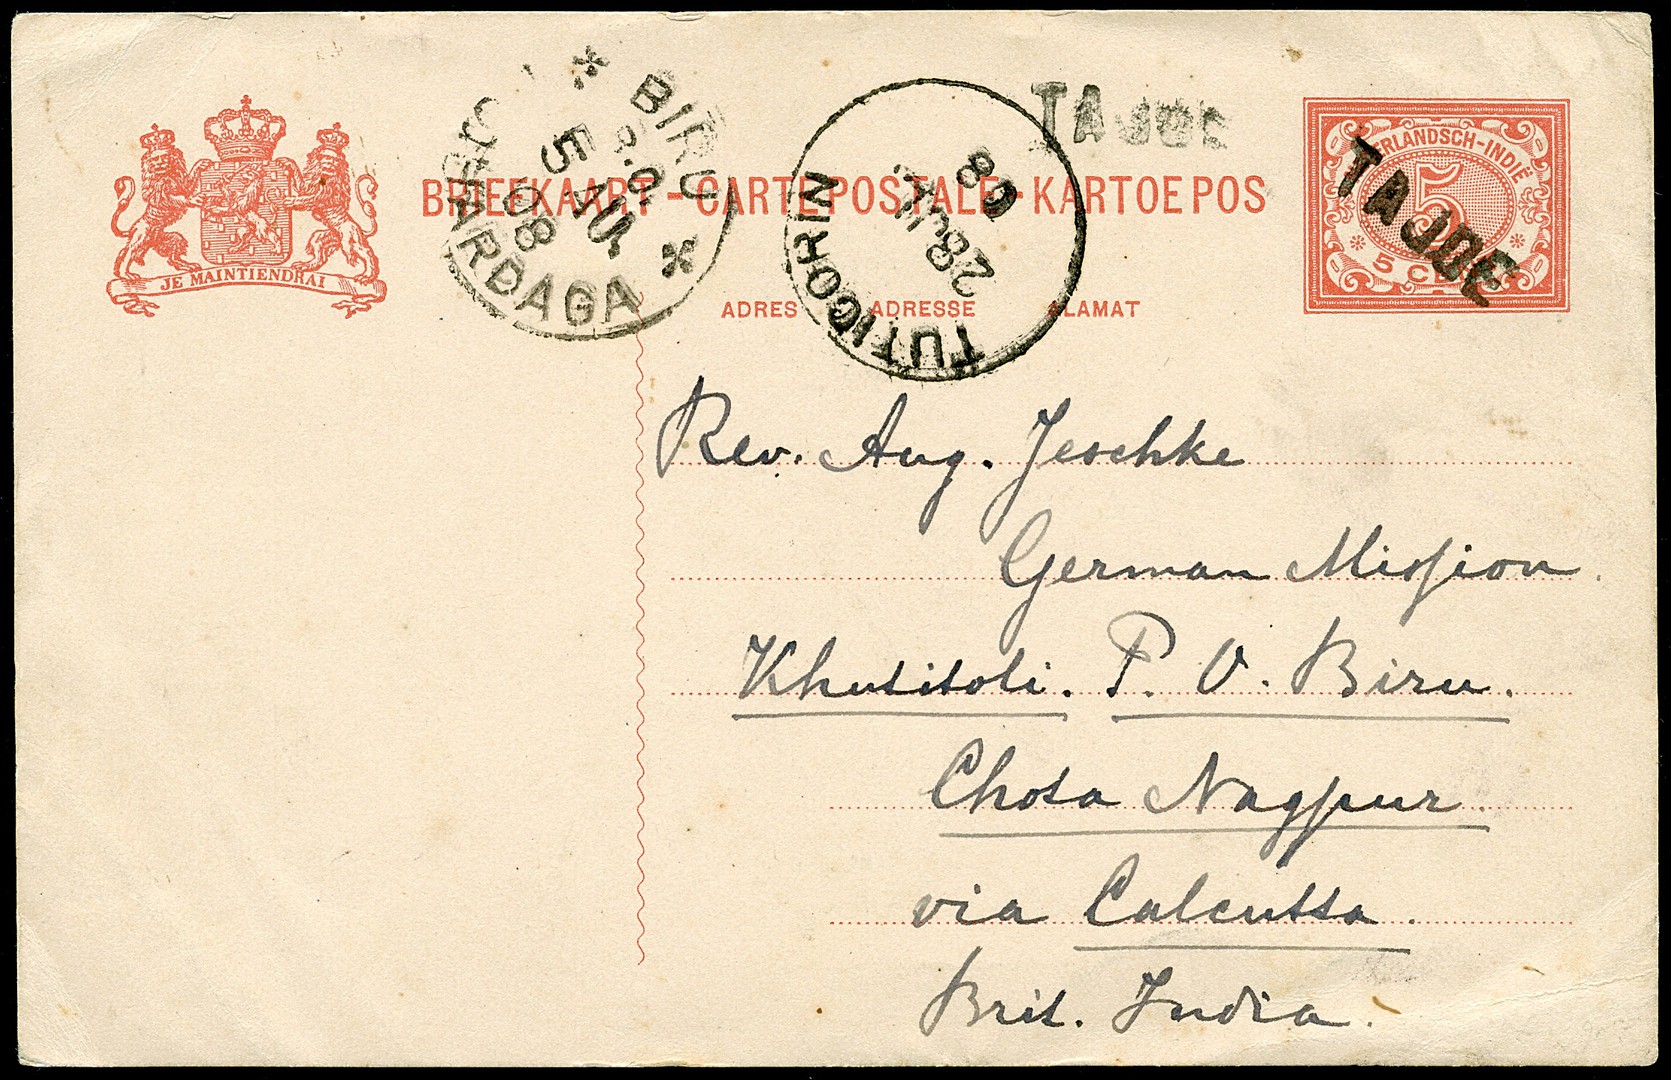 BRIEFKAART - CARTE POSTALE - KARTOE POS
JE MAINTIENDRAI
ADRES ADRESSE ALAMAT
NEDERLANDSCH-INDIË
5
5 CENT
TAJOE
TAJOE
BIRU
5 AU
08
LOHARDAGA
TUTICORIN
28 JY
08
Rev. Aug. Jeschke
German Mission
Khutitoli. P. O. Biru.
Chota Nagpur
via Calcutta.
Brit. India.